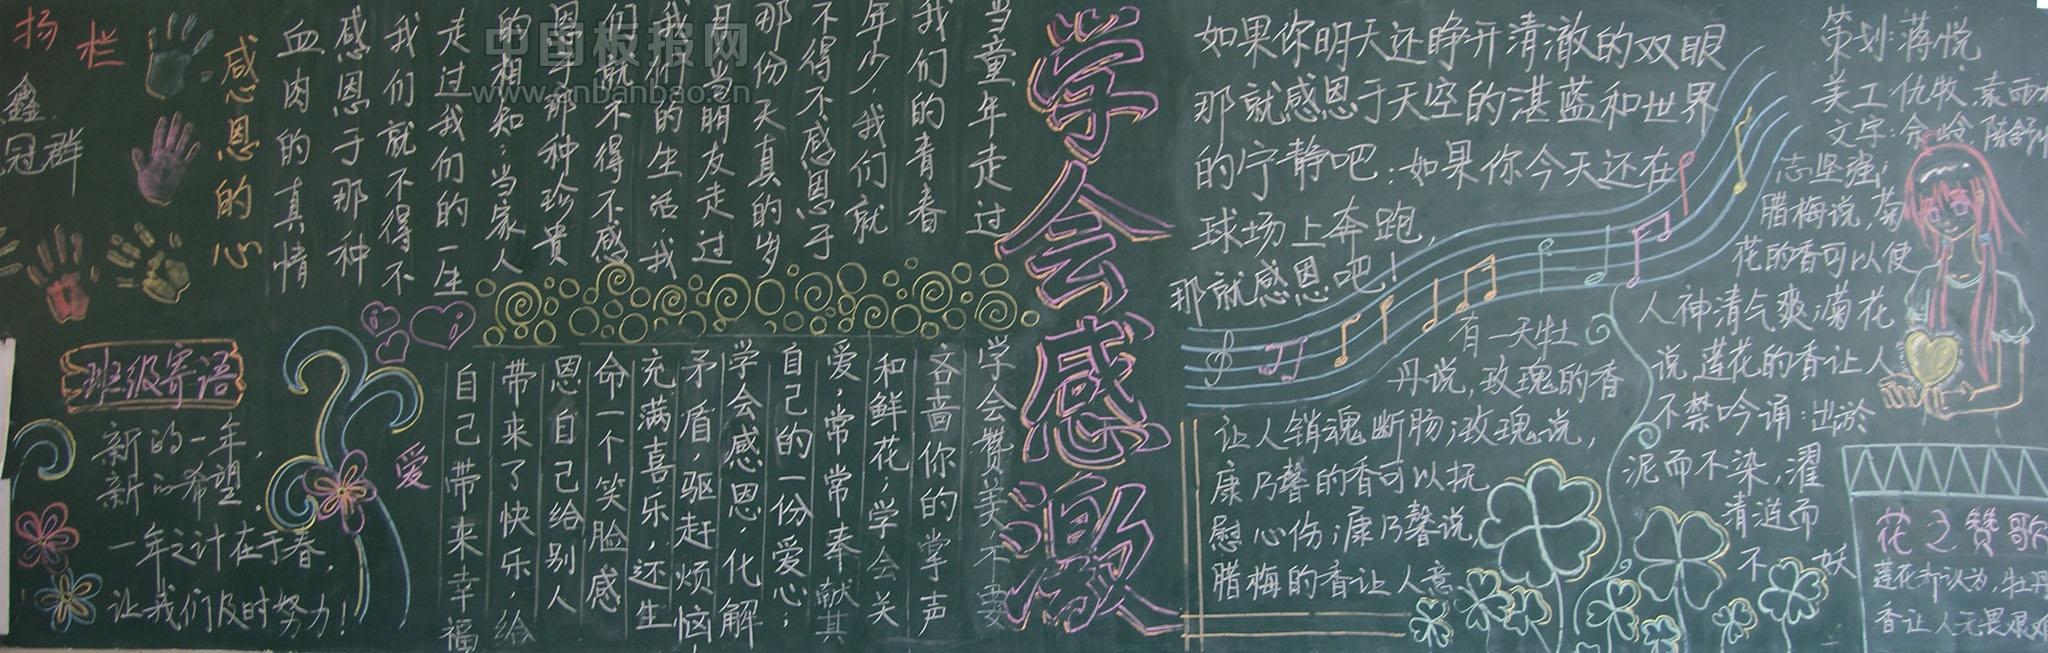 扬
栏
鑫
冠群
感恩的心
当童年走过
我们的青春
年少,我们就
不得不感恩于
那份天真的岁
月;当朋友走过
我们的生活,我
们就不得不感
恩于那种珍贵
的相知;当家人
走过我们的一生
我们就不得不
感恩于那种
血肉的真情
中国板报网
www.cnbanbao.cn
班级寄语
新的一年,
新的希望,
一年之计在于春,
让我们及时努力!
爱
学会赞美不要
吝啬你的掌声
和鲜花;学会关
爱,常常奉献其
自己的一份爱心;
学会感恩,化解
矛盾,驱赶烦恼
充满喜乐,还生
命一个笑脸感
恩自己给别人
带来了快乐,给
自己带来幸福
学会感激
如果你明天还睁开清澈的双眼
那就感恩于天空的湛蓝和世界
的宁静吧;如果你今天还在
球场上奔跑,
那就感恩吧!
策划:蒋悦
美工:仇牧,袁雨
文字:余
花之赞歌
莲花却认为,牡丹
香让人无畏艰难
有一天牡
丹说,玫瑰的香
让人销魂断肠;玫瑰说,
康乃馨的香可以抚
慰心伤;康乃馨说,
腊梅的香让人意
志坚强;
腊梅说,菊
花的香可以使
人神清气爽;菊花
说莲花的香让人
不禁吟诵:出於
泥而不染,濯
清涟而
不妖